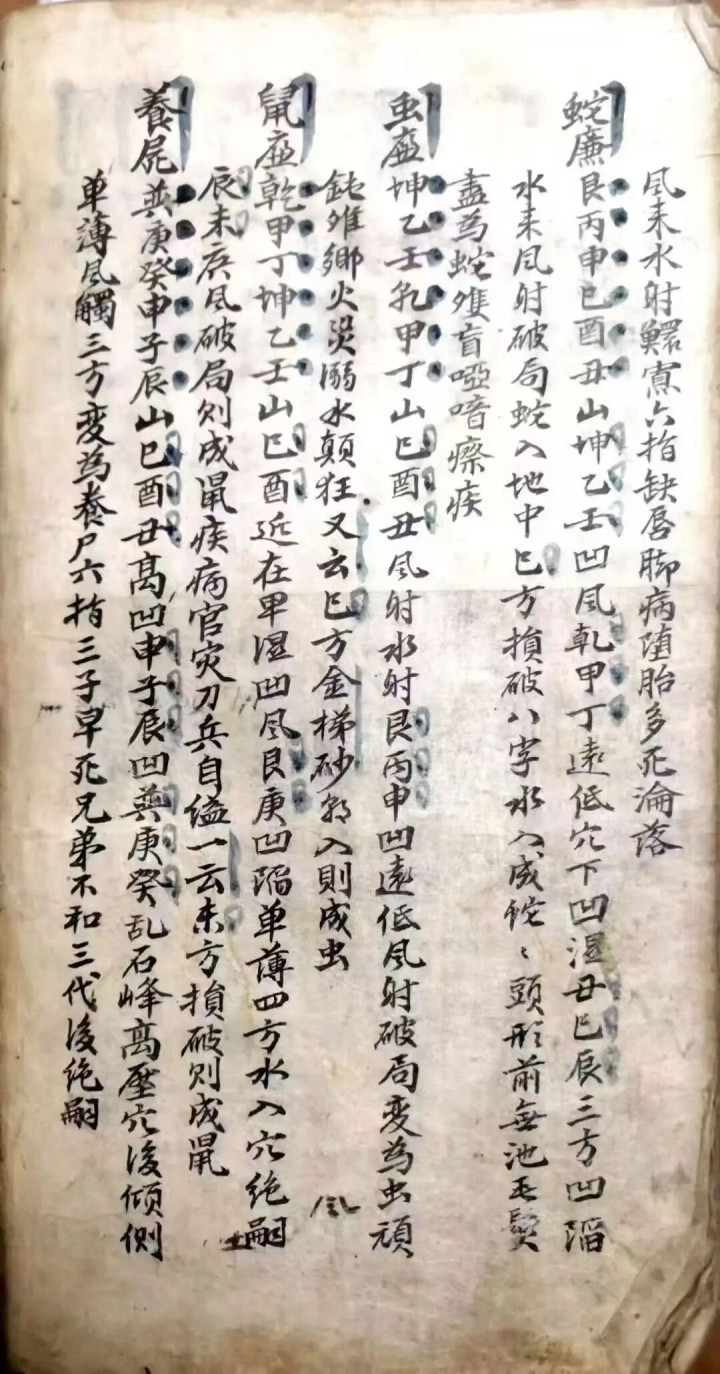 風来水射鰥寡六指缺唇脚病墮胎多死淪落
蛇廉艮丙申巳酉丑山坤乙壬凹風乾甲丁遠低穴下凹湿丑巳辰三方凹陷
水来風射破局蛇入地中巳方損破八字水入成蛇〻頭形前無池玉髮
盡為蛇雖盲啞喑瘵疾
虫廉坤乙壬乾甲丁山巳酉丑風射水射艮丙申凹遠低風射破局変為虫頑
鈍雖鄉火災溺水顛狂又云巳方金梯砂入則成虫
風
鼠廉乾甲丁坤乙壬山巳酉近在甲湿凹風艮庚凹陷单薄四方水入穴绝嗣
辰未戌風破局则成鼠疾病官灾刀兵自缢一云未方損破则成鼠
養屍巽庚癸申子辰山巳酉丑高凹申子辰凹巽庚癸乱石峰高壓穴後倾側
单薄風觸三方変為養尸六指三子早死兄弟不和三代後绝嗣